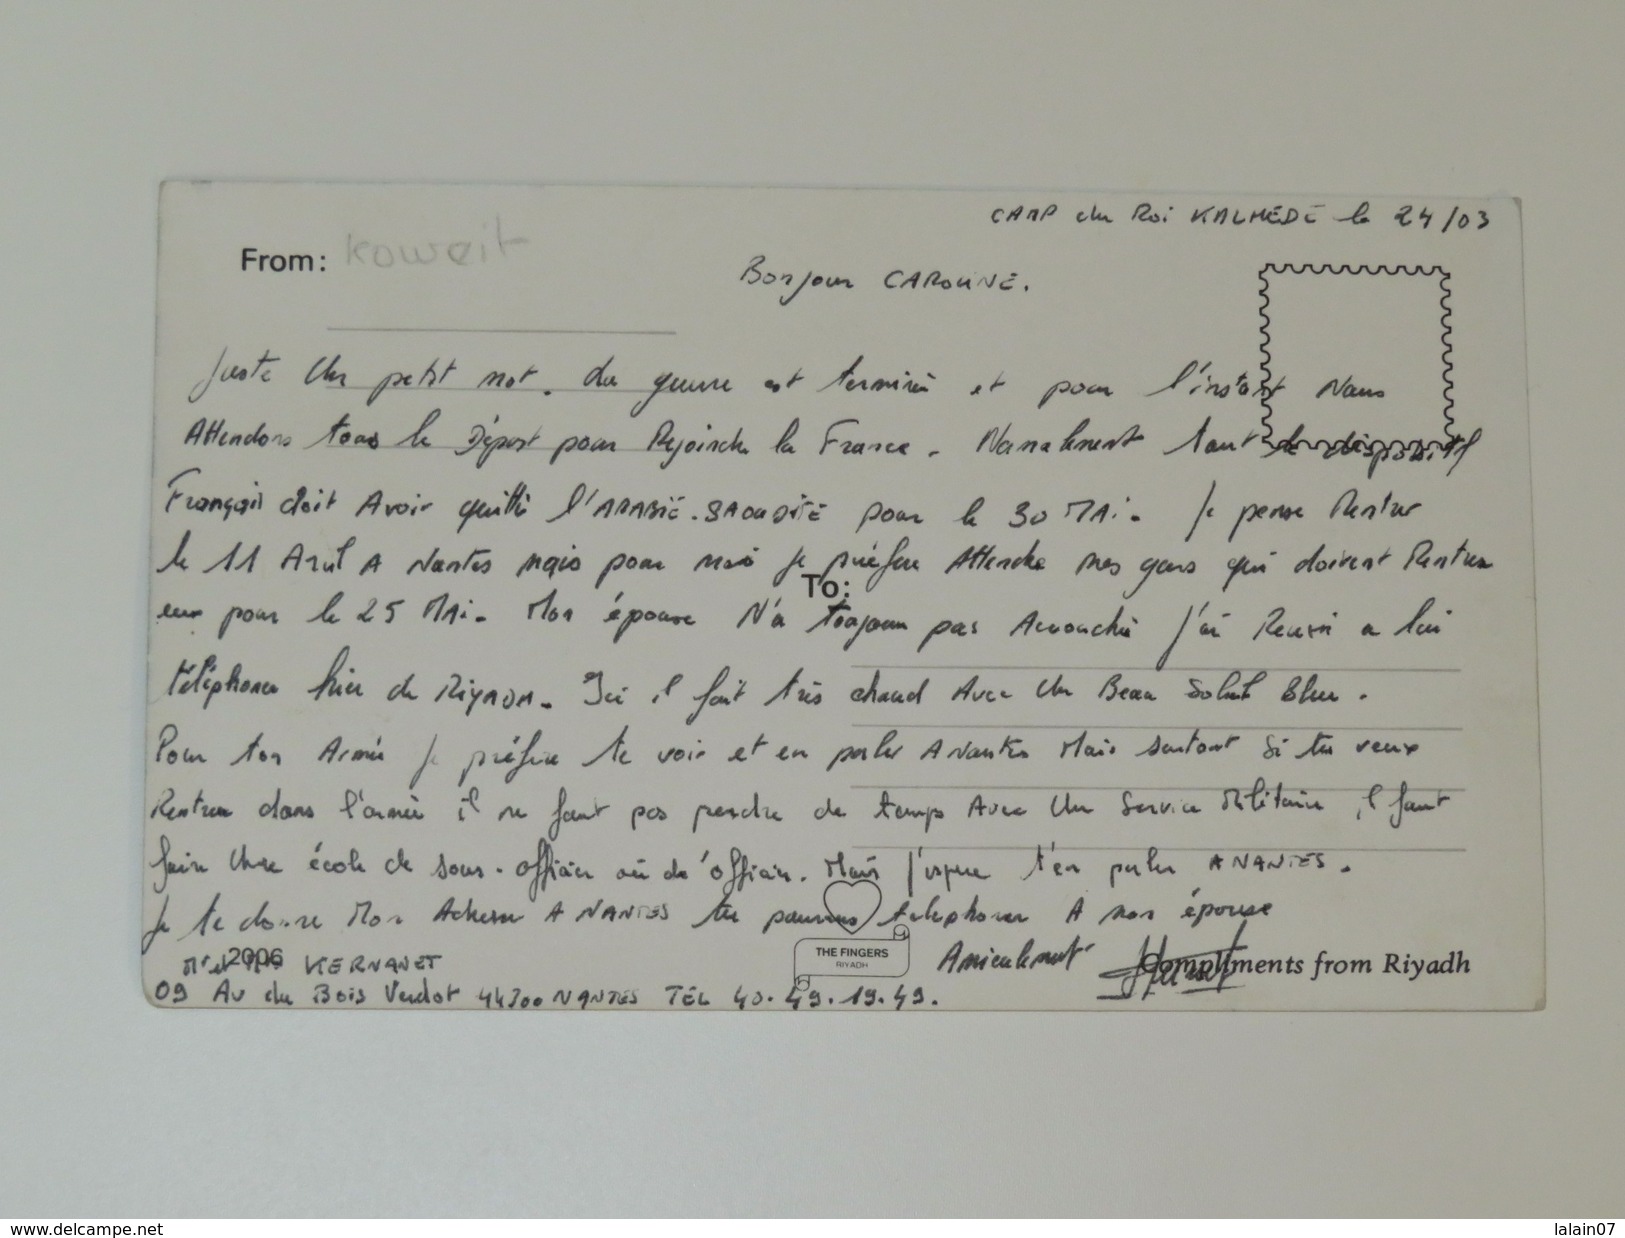 CAMP du Roi KALHEDE le 24/03
From: Koweit
Bonjour CAROLINE.
Juste Un petit mot. La guerre est terminé et pour l'instant Nous
Attendons tous le Départ pour Rejoindre la France. Normalement tout le dispositif
Français doit Avoir quitté l'ARABIE-SAOUDITE pour le 30 MAi. Je pense Rentrer
le 11 Avril A Nantes mais pour moi je préfère Attendre mes gars qui doivent Rentrer
eux pour le 25 MAi. Mon épouse N'a toujours pas Accouché j'ai Reussi a lui
To:
téléphoner hier de RIYADH. Ici il fait très chaud Avec Un Beau Soleil Bleu.
Pour ton Armée je préfère te voir et en parler A Nantes Mais surtout Si tu veux
Rentrer dans l'armée il ne faut pas perdre de temps Avec Un Service Militaire, il faut
faire Une école de sous-officier ou d'officier. Mais j'espère t'en parler A NANTES.
Je te donne Mon Adresse A NANTES tu pourras telephoner A mon épouse
2006
Mr et Me KERNANET
THE FINGERS
RIYADH
Amicalement
Compliments from Riyadh
09 Av du Bois Verdot 44300 NANTES TEL 40.49.19.49.
www.delcampe.net
lalain07